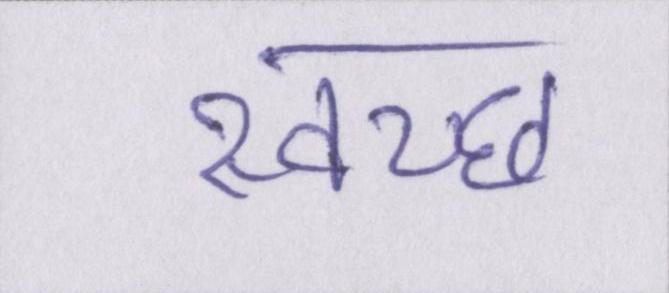 स्वच्छ